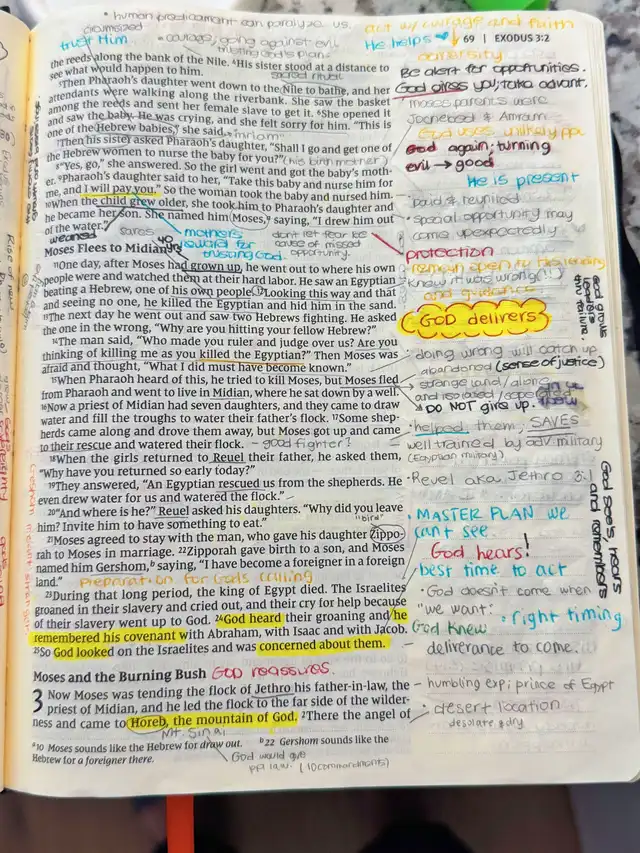 • human predicament can paralyze us.
act w/ courage and faith
circumsized
trust Him
• courage; going against evil
trusting God's plan
He helps
69 | EXODUS 3:2
adversity
the reeds along the bank of the Nile. ⁴His sister stood at a distance to
see what would happen to him.
sacred ritual
Be alert for opportunities.
⁵Then Pharaoh's daughter went down to the Nile to bathe, and her
God gives you; take advant.
attendants were walking along the riverbank. She saw the basket
among the reeds and sent her female slave to get it. ⁶She opened it
moses parents were
Jochebed & Amram
and saw the baby. He was crying, and she felt sorry for him. "This is
one of the Hebrew babies," she said.
miriam
God uses unlikely ppl
⁷Then his sister asked Pharaoh's daughter, "Shall I go and get one of
God again; turning
the Hebrew women to nurse the baby for you?"
(his birth mother)
evil → good
⁸"Yes, go," she answered. So the girl went and got the baby's moth-
er. ⁹Pharaoh's daughter said to her, "Take this baby and nurse him for
He is present
me, and I will pay you." So the woman took the baby and nursed him.
¹⁰When the child grew older, she took him to Pharaoh's daughter and
• paid & reunited
he became her son. She named him Moses,ᵃ saying, "I drew him out
• special opportunity may
of the water."
come unexpectedly
weaned
saves
mothers
reward for
trusting God
don't let fear be
cause of missed
opportunity.
40
protection
Moses Flees to Midian
¹¹One day, after Moses had grown up, he went out to where his own
• remain open to
people were and watched them at their hard labor. He saw an Egyptian
know it was wrong(!)
beating a Hebrew, one of his own people. ¹²Looking this way and that
and guidance
and seeing no one, he killed the Egyptian and hid him in the sand.
¹³The next day he went out and saw two Hebrews fighting. He asked
GOD delivers
the one in the wrong, "Why are you hitting your fellow Hebrew?"
¹⁴The man said, "Who made you ruler and judge over us? Are you
thinking of killing me as you killed the Egyptian?" Then Moses was
doing wrong will catch up
afraid and thought, "What I did must have become known."
abandoned (sense of justice)
¹⁵When Pharaoh heard of this, he tried to kill Moses, but Moses fled
strange land/along
from Pharaoh and went to live in Midian, where he sat down by a well.
and isolated
¹⁶Now a priest of Midian had seven daughters, and they came to draw
DO NOT give up.
water and fill the troughs to water their father's flock. ¹⁷Some shep-
herds came along and drove them away, but Moses got up and came
• helped them; SAVES
to their rescue and watered their flock.
- good fighter?
well trained by adv military
(Egyptian military)
¹⁸When the girls returned to Reuel their father, he asked them,
"Why have you returned so early today?"
• Revel aka Jethro 3:1
¹⁹They answered, "An Egyptian rescued us from the shepherds. He
even drew water for us and watered the flock."
²⁰"And where is he?" Reuel asked his daughters. "Why did you leave
him? Invite him to have something to eat."
"bird"
• MASTER PLAN we
²¹Moses agreed to stay with the man, who gave his daughter Zippo-
can't see.
rah to Moses in marriage. ²²Zipporah gave birth to a son, and Moses
God hears!
named him Gershom,ᵇ saying, "I have become a foreigner in a foreign
land."
Preparation for Gods calling
best time to act
²³During that long period, the king of Egypt died. The Israelites
• God doesn't come when
groaned in their slavery and cried out, and their cry for help because
"we want:
• right timing
of their slavery went up to God. ²⁴God heard their groaning and he
God knew
remembered his covenant with Abraham, with Isaac and with Jacob.
deliverance to come.
²⁵So God looked on the Israelites and was concerned about them.
God grows
leaders
thru failure.
God see's, hears
and remembers
Moses and the Burning Bush
GOD reassures.
3 Now Moses was tending the flock of Jethro his father-in-law, the
- humbling exp; prince of Egypt
priest of Midian, and he led the flock to the far side of the wilder-
ness and came to Horeb, the mountain of God. ²There the angel of
• desert location
desolate & dry
Mt. Sinai
ᵃ10 Moses sounds like the Hebrew for draw out. ᵇ22 Gershom sounds like the
Hebrew for a foreigner there.
God would give
ppl law. (10 commandments)